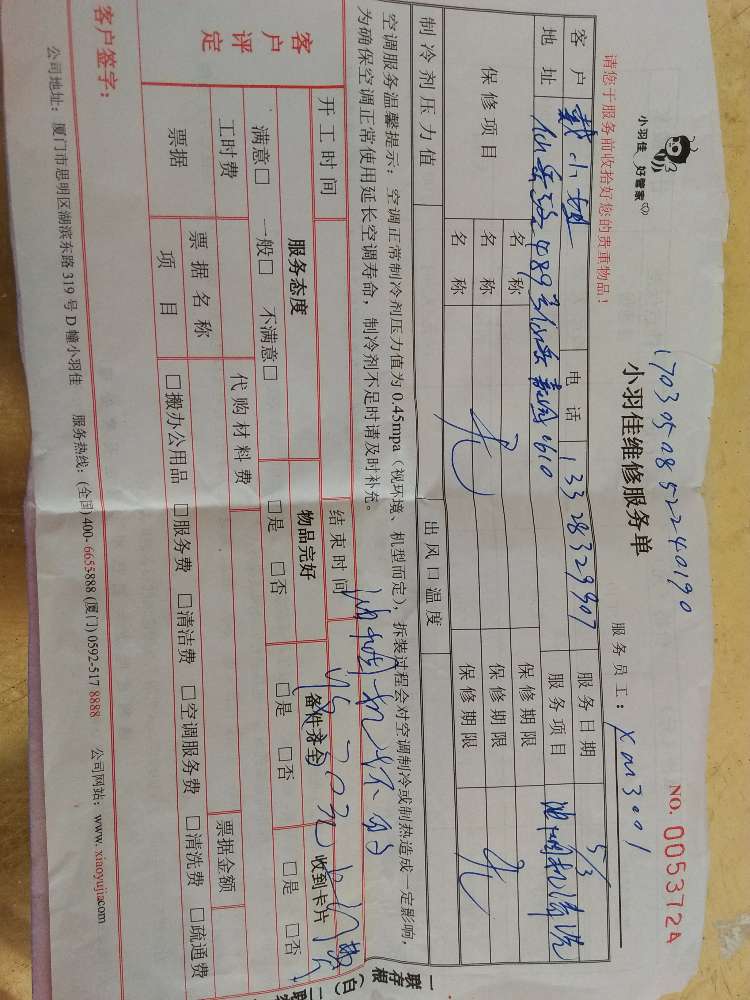 小羽佳 好管家
1703050852240190
小羽佳维修服务单
NO. 0053724
请您于服务前收拾好您的贵重物品！
服务员工：xm3001
客户 戴小姐 电话 13328329907 服务日期 5/3
地址 仙岳路 489号 610 服务项目 油烟机清洗
保修项目 名称 保修期限
名称 无 保修期限 无
名称 保修期限
制冷剂压力值 出风口温度
空调服务温馨提示：空调正常制冷剂压力值为0.45mpa（视环境、机型而定），拆装过程会对空调制冷或制热造成一定影响，
为确保空调正常使用延长空调寿命，制冷剂不足时请及时补充。
开工时间 结束时间
客户评定 服务态度 物品完好 备件齐全 收到卡片
满意□ 一般□ 不满意□ □是 □否 □是 □否 □是 □否
工时费 代购材料费
票据 票据名称 票据金额
项目 □搬办公用品 □服务费 □清洁费 □空调服务费 □清洗费 □疏通费
客户签字：
公司地址：厦门市思明区湖滨东路 319 号 D 幢小羽佳 服务热线：(全国)400-6655888 (厦门)0592-517 8888 公司网站：www.xiaoyujia.com
一联存根（白）二联